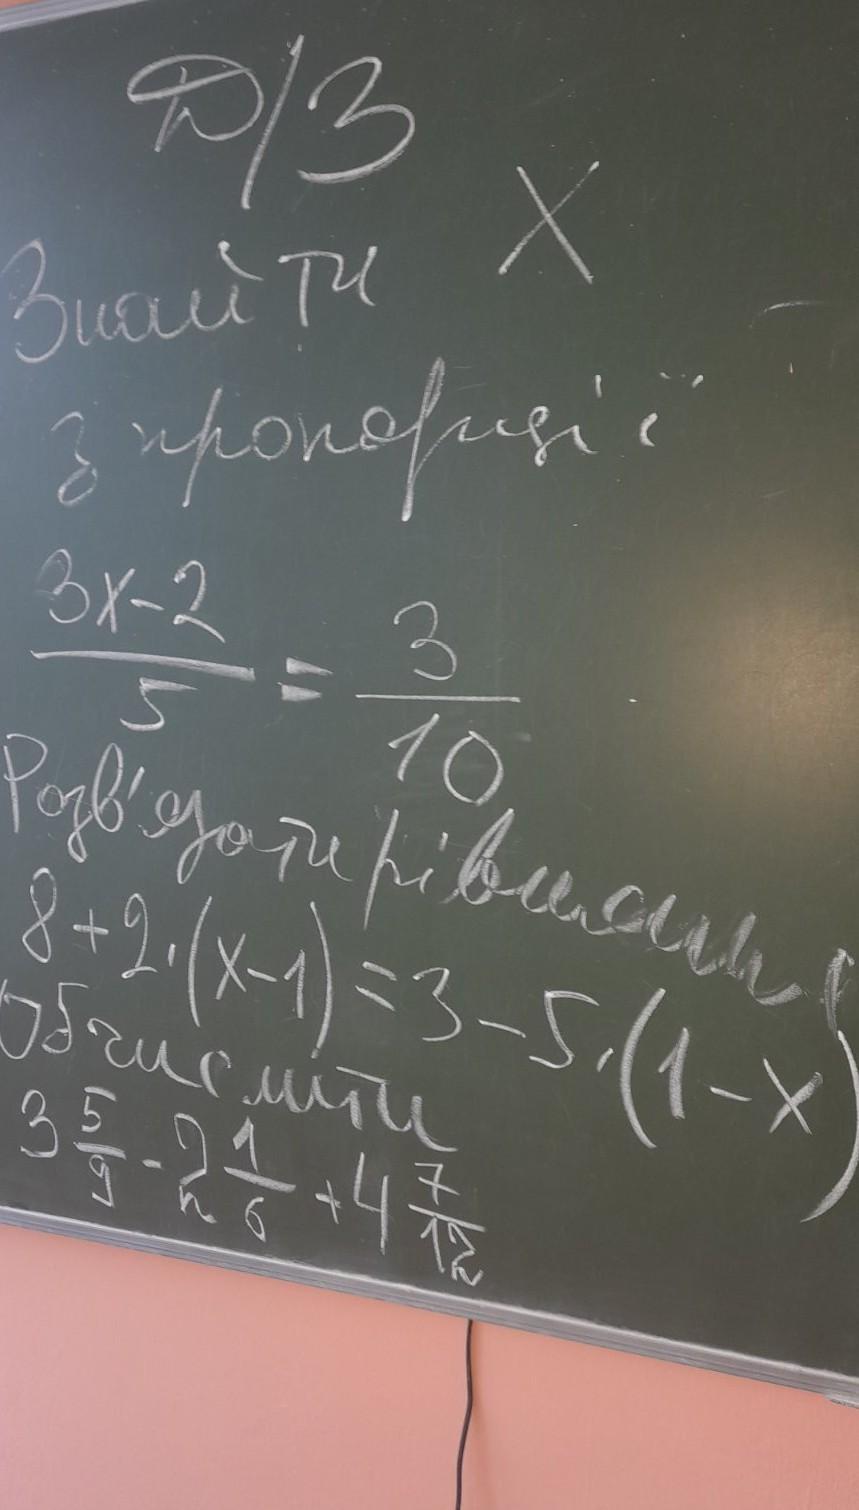 Д/З
Знайти X
з пропорції
3x-2/5 = 3/10
Розв'язати рівняння
8+2·(x-1)=3-5·(1-x)
Обчислити
3 5/9 - 2 1/6 + 4 7/12